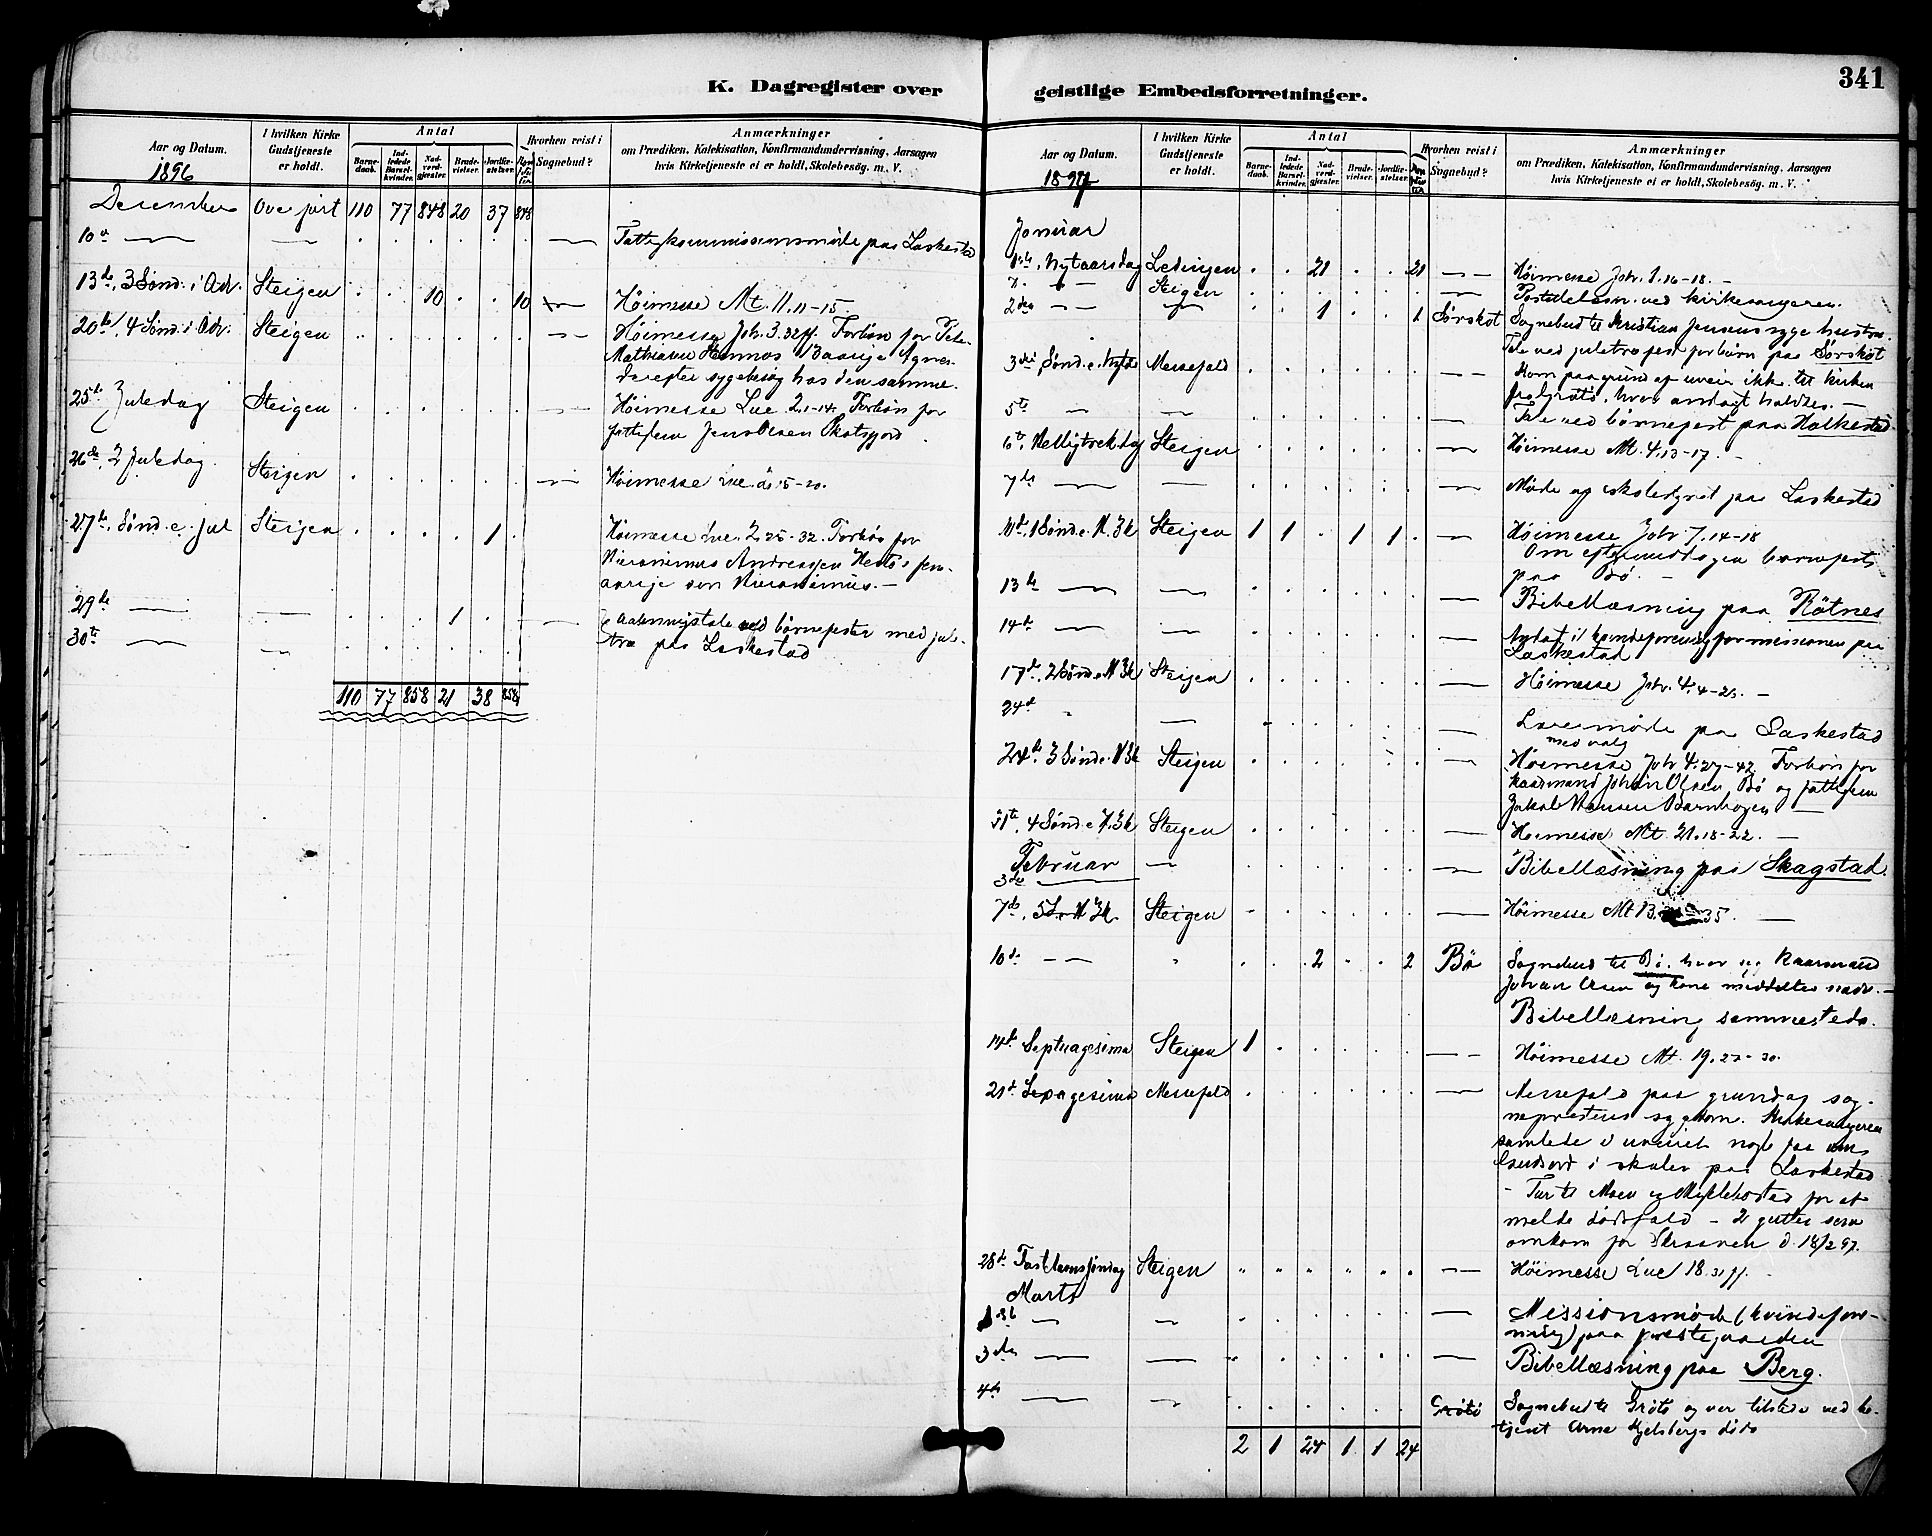 341
K. Dagregister over
Aar og Datum.
1896
I hvilken Kirke Gudstjeneste er holdt.
Antal
Barnedaab.
Indledede Barselkvinder.
Nadverdgjester.
Brudevielser.
Jordfæstelser.
Hvorhen reist i Sognebud?
Anmærkninger
om Prædiken, Katekisation, Konfirmandundervisning, Aarsagen
hvis Kirketjeneste ei er holdt, Skolebesög. m. V.
December Overført 110 77 848 20 37 848
10de — Fattigkommissionsmøde paa Laskestad
13de, 3 Sønd. i Adv. Steigen . . 10 . . 10 — Høimesse Mt. 11.11-15.
20de, 4 Sønd. i Adv. Steigen — Høimesse Joh. 3.22ff. Forbøn for
Mathiasen
Derefter sygebesøg hos den samme.
25de Juledag Steigen — Høimesse Luc 2.1-14. Forbøn for
Jens Olsen Skotsfjord
26de, 2 Juledag. Steigen — Høimesse Luc. 2.15-20.
27de, Sønd. e. jul Steigen . . . . 1 Høimesse Luc. 2.25-32. Forbøn for
Hieronimus Andreassen
søn Hieronimus. —
29de — — . . . 1 . —
30te — — ved børnefester med jule-
træ paa Laskestad
110 77 858 21 38 858
geistlige Embedsforretninger.
Aar og Datum.
1897
I hvilken Kirke Gudstjeneste er holdt.
Antal
Barnedaab.
Indledede Barselkvinder.
Nadverdgjester.
Brudevielser.
Jordfæstelser.
Hvorhen reist i Sognebud?
Anmærkninger
om Prædiken, Katekisation, Konfirmandundervisning, Aarsagen
hvis Kirketjeneste ei er holdt, Skolebesög. m. V.
Januar
1ste, Nytaarsdag Ledingen . . 21 . . 21 — Høimesse Joh. 1.16-18. —
Steigen — ved kirkesangeren.
2den — — . . 1 . . 1 Sørskot Sognebud til Kristian Jensens syge hustru.
Tale ved juletræfest for børn paa Sørskot
3die Sønd. e. Nytr Messefald — Kom paa grund af uveir ikke til kirken
fra Grøtø, hvor andagt holdtes. —
5te — — — Tale ved børnefest paa Holkestad
6te Helligtrekdag Steigen — Høimesse Mt. 4.13-17. —
7de — — — Møde og paa Laskestad
10de, 1 Sønd. e. H. 3k Steigen 1 1 . 1 1 . — Høimesse Joh 7.14-18
Om eftermiddagen børnefest
paa Bø. —
13de — — — Bibellæsning paa Røtnes
14de — — — kvindeforening for missionen paa
Laskestad
17de, 2 Sønd. e. H 3k Steigen — Høimesse Joh. 4.4-26. —
24de — — Læremøde paa Laskestad
med valg
24de, 3 Sønd e. H 3k Steigen — Høimesse Joh 4.27-42 Forbøn for
kaarmand Johan Olsen Bø og
Jakob Hansen
31te, 4 Sønd. e H. 3k Steigen — Høimesse Mt. 21.18-22. —
Februar —
3die — — Bibellæsning paa Skagstad.
7de, 5 S. e. H 3k. Steigen — Høimesse Mt 13. 35. —
10de — . . 2 . . 2 Bø Sognebud til Bø. hvor og kaarmand
Johan Olsen og kone meddeltes nadv. —
Bibellæsning sammesteds.
14de Septuagesima Steigen 1 — Høimesse Mt. 19.27-30.
21de Sexagesima Messefald — Messefald paa grund af sog-
neprestens sygdom. Kirkesangeren
samlede i uveiret nogle faa om
Guds ord i skolen paa Laskestad
- Tur til Moen og Myklebostad for at
melde dødsfald - 2 gutter som
omkom for Skraaven d. 18/2 97.
28de Fastelavnssøndag Steigen — Høimesse Luc 18.31 ff. -
Marts
1ste — — — Missionsmøde (kvindefore-
ning) paa prestegaarden
3die — — — Bibellæsning paa Berg.
4de — — Grøtø Sognebud til Grøtø og var tilstede ved be-
tjent Arne Kjelsbergs død
2 1 24 1 1 24